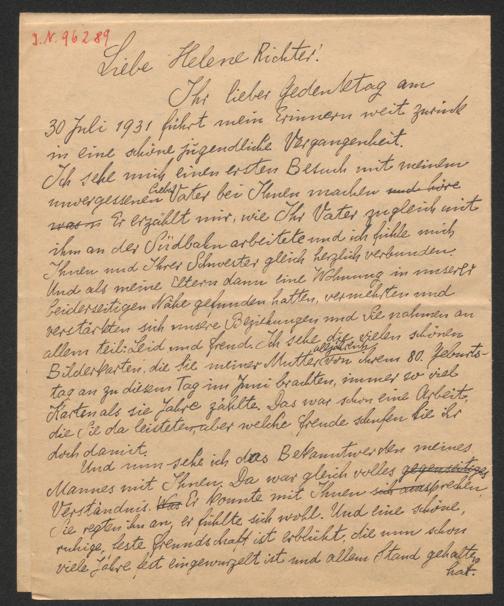 J.N. 96289
Liebe Helene Richter!
Ihr lieber Gedenktag am
30 Juli 1931 führt mein Erinnern weit zurück
in eine schöne jugendliche Vergangenheit.
Ich sehe mich einen ersten Besuch mit meinem
unvergessenen Vater bei Ihnen machen und höre
was er Er erzählt mir, wie Ihr Vater zugleich mit
ihm an der Südbahn arbeitete und ich fühle mich
Ihnen und Ihrer Schwester gleich herzlich verbunden.
Und als meine Eltern dann eine Wohnung in unserer
beiderseitigen Nähe gefunden hatten, vermehrten und
verstärkten sich unsere Beziehungen und Sie nahmen an
allem teil: Leid und Freud. Ich sehe die vielen schönen
Bilderkarten, die Sie meiner Mutter alljährlich von ihrem 80. Geburts-
tag an zu diesem Tag im Juni brachten, immer so viel
Karten als sie Jahre zählte. Das war schon eine Arbeit,
die Sie da leisteten, aber welche Freude schufen Sie ihr
doch damit.
Und nun sehe ich das Bekanntwerden meines
Mannes mit Ihnen. Da war gleich volles gegenseitiges
Verständnis. Was Er konnte mit Ihnen sich aussprechen
Sie regten ihn an, er fühlte sich wohl. Und eine schöne,
ruhige, feste Freundschaft ist erblüht, die nun schon
viele Jahre fest eingewurzelt ist und allem Stand gehalten
hat.